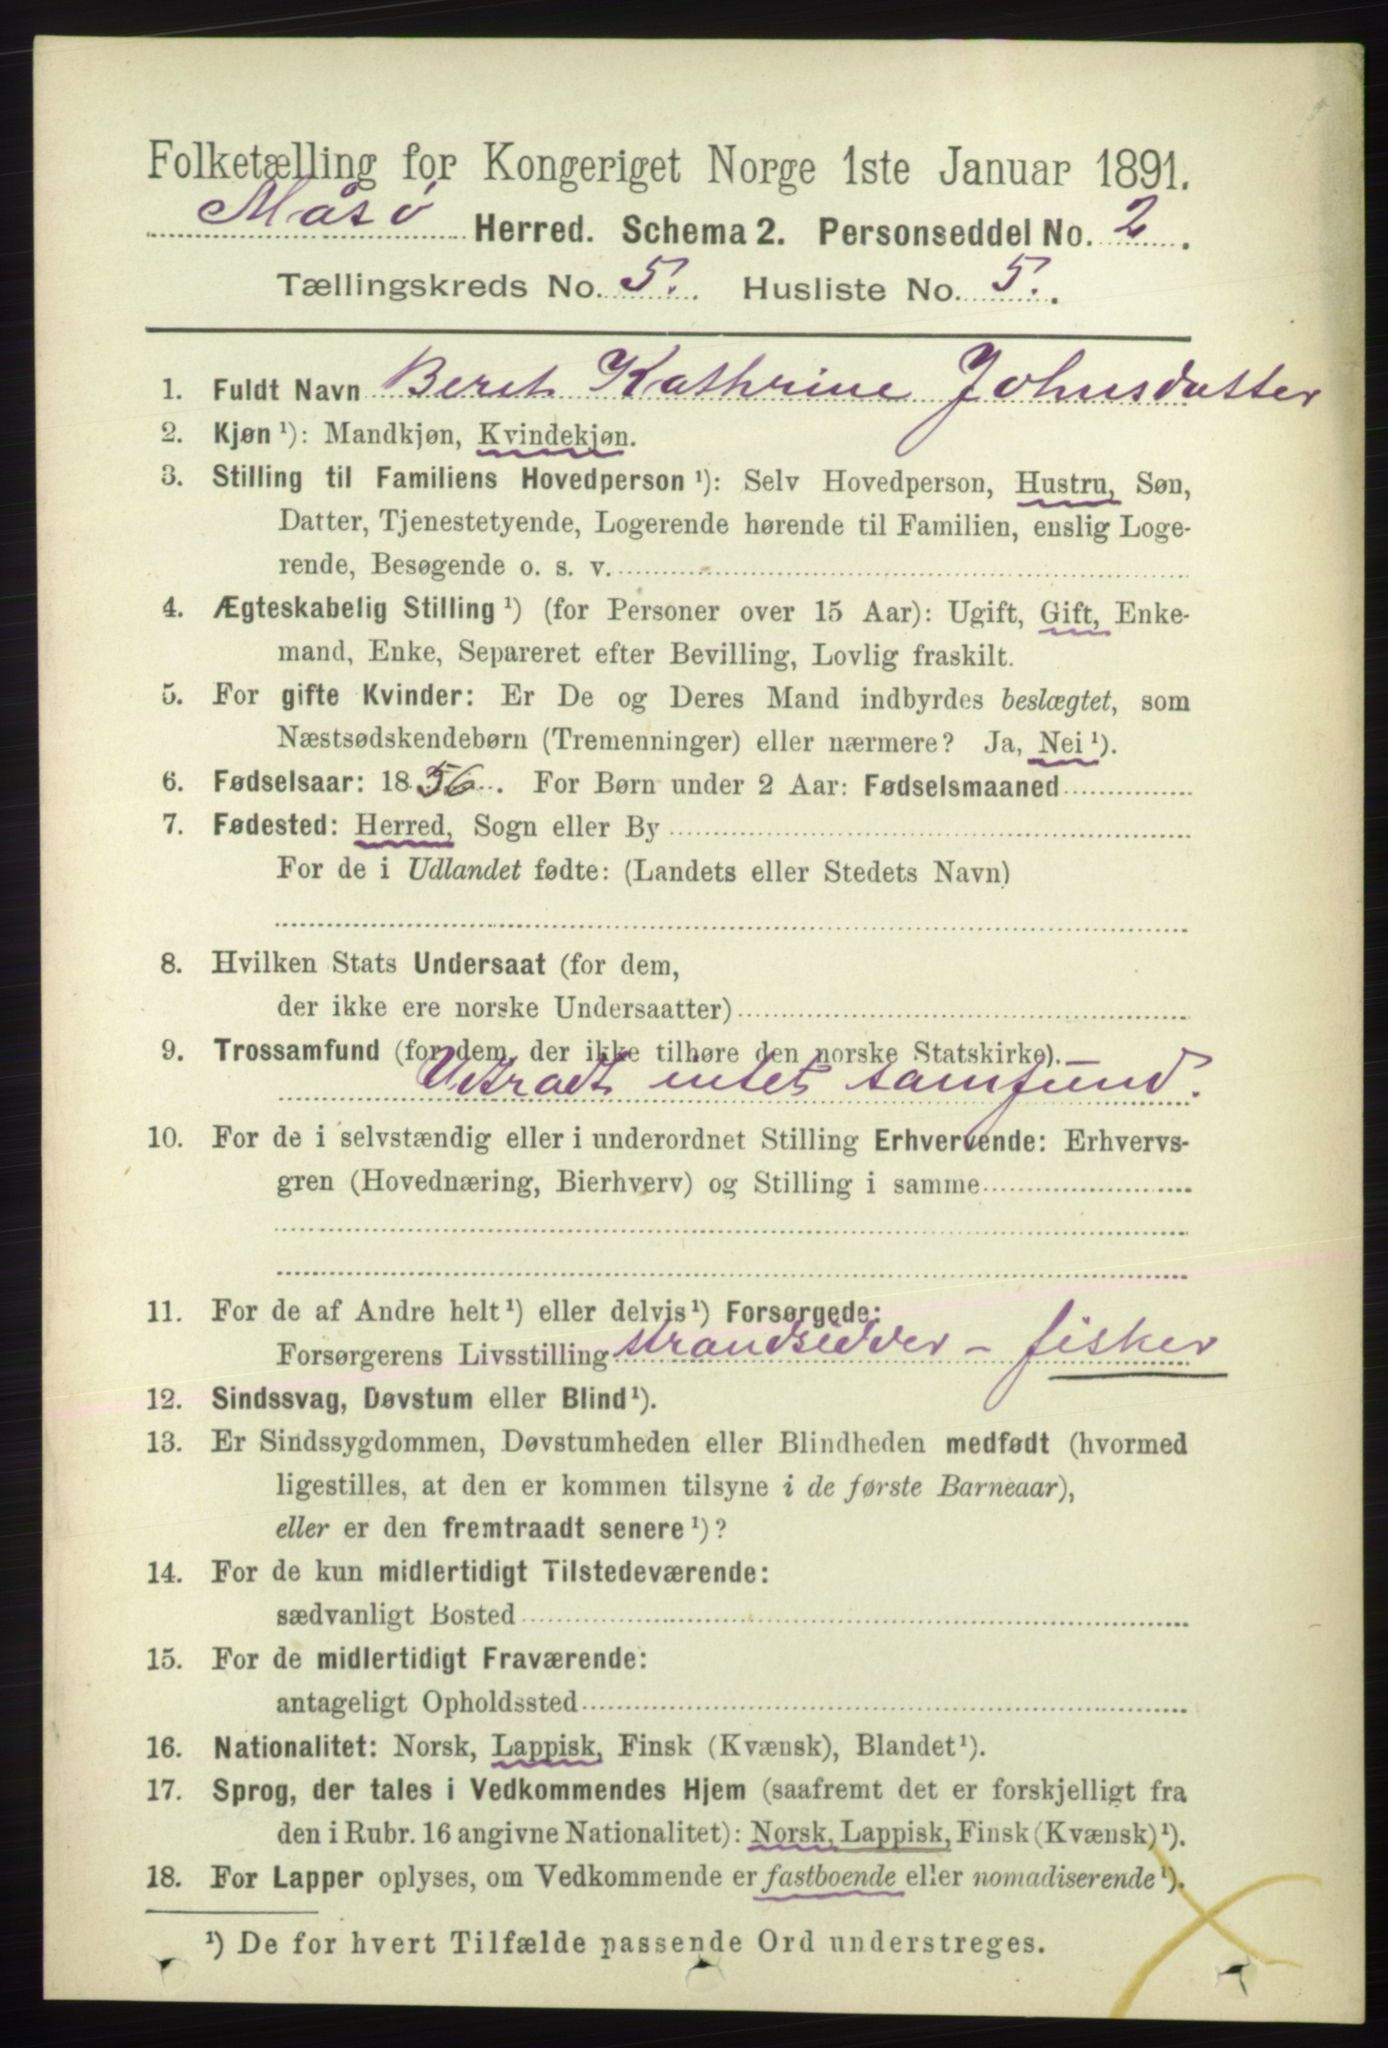 Folketælling for Kongeriget Norge 1ste Januar 1891.
Måsø Herred. Schema 2. Personseddel No. 2.
Tællingskreds No. 5. Husliste No. 5.
1. Fuldt Navn Berit Kathrine Johnsdatter
2. Kjøn ¹): Mandkjøn, Kvindekjøn.
3. Stilling til Familiens Hovedperson ¹): Selv Hovedperson, Hustru, Søn,
Datter, Tjenestetyende, Logerende hørende til Familien, enslig Loge-
rende, Besøgende o. s. v.
4. Ægteskabelig Stilling ¹) (for Personer over 15 Aar): Ugift, Gift, Enke-
mand, Enke, Separeret efter Bevilling, Lovlig fraskilt.
5. For gifte Kvinder: Er De og Deres Mand indbyrdes beslægtet, som
Næstsødskendebørn (Tremenninger) eller nærmere? Ja, Nei ¹).
6. Fødselsaar: 1856. For Børn under 2 Aar: Fødselsmaaned
7. Fødested: Herred, Sogn eller By
For de i Udlandet fødte: (Landets eller Stedets Navn)
8. Hvilken Stats Undersaat (for dem,
der ikke ere norske Undersaatter)
9. Trossamfund (for dem, der ikke tilhøre den norske Statskirke).
Utradt intet samfund.
10. For de i selvstændig eller i underordnet Stilling Erhvervende: Erhvervs-
gren (Hovednæring, Bierhverv) og Stilling i samme
11. For de af Andre helt ¹) eller delvis ¹) Forsørgede:
Forsørgerens Livsstilling strandsidder - fisker
12. Sindssvag, Døvstum eller Blind ¹).
13. Er Sindssygdommen, Døvstumheden eller Blindheden medfødt (hvormed
ligestilles, at den er kommen tilsyne i de første Barneaar),
eller er den fremtraadt senere ¹)?
14. For de kun midlertidigt Tilstedeværende:
sædvanligt Bosted
15. For de midlertidigt Fraværende:
antageligt Opholdssted
16. Nationalitet: Norsk, Lappisk, Finsk (Kvænsk), Blandet ¹).
17. Sprog, der tales i Vedkommendes Hjem (saafremt det er forskjelligt fra
den i Rubr. 16 angivne Nationalitet): Norsk, Lappisk, Finsk (Kvænsk) ¹).
18. For Lapper oplyses, om Vedkommende er fastboende eller nomadiserende ¹).
¹) De for hvert Tilfælde passende Ord understreges.